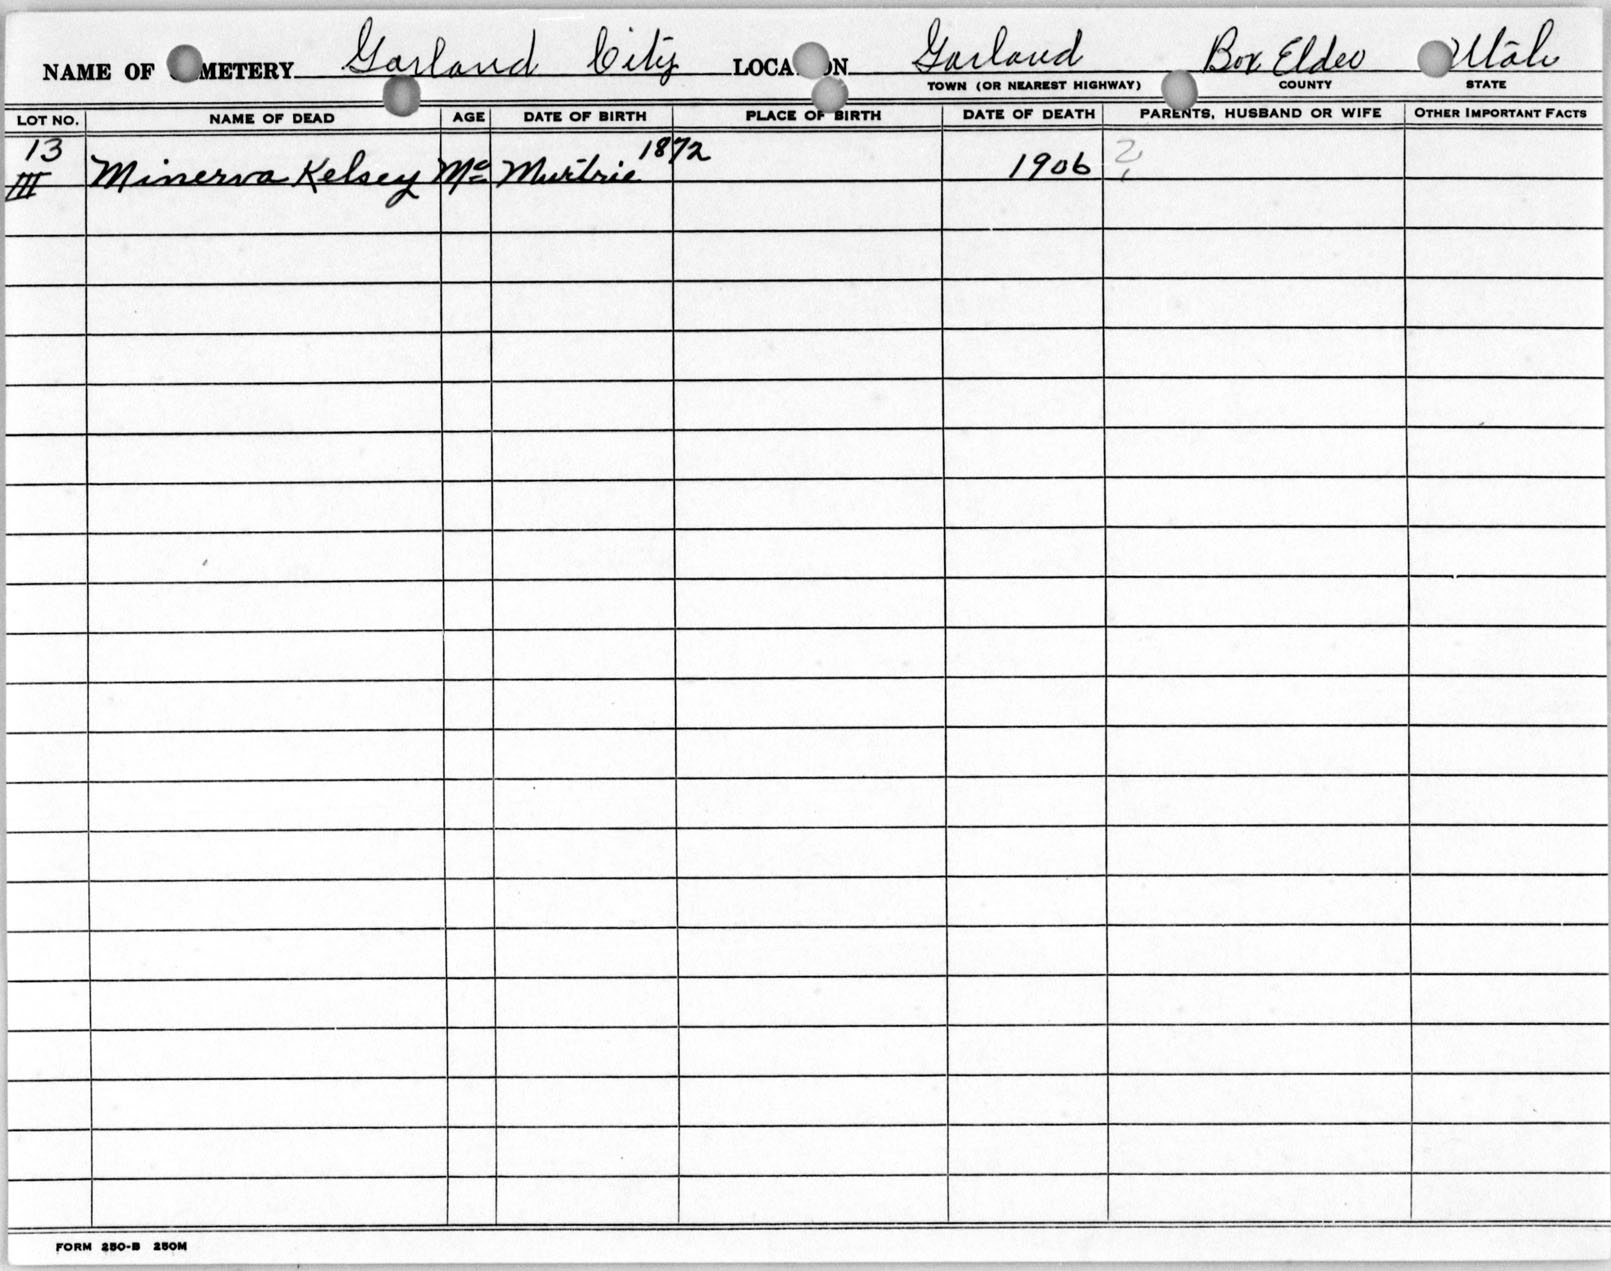 NAME OF CEMETERY Garland City LOCATION Garland Box Elder Utah
TOWN (OR NEAREST HIGHWAY) COUNTY STATE
LOT NO. NAME OF DEAD AGE DATE OF BIRTH PLACE OF BIRTH DATE OF DEATH PARENTS, HUSBAND OR WIFE OTHER IMPORTANT FACTS
13 1872
III Minerva Kelsey Mc Murtrie 1906 ?
FORM 250-B 250M